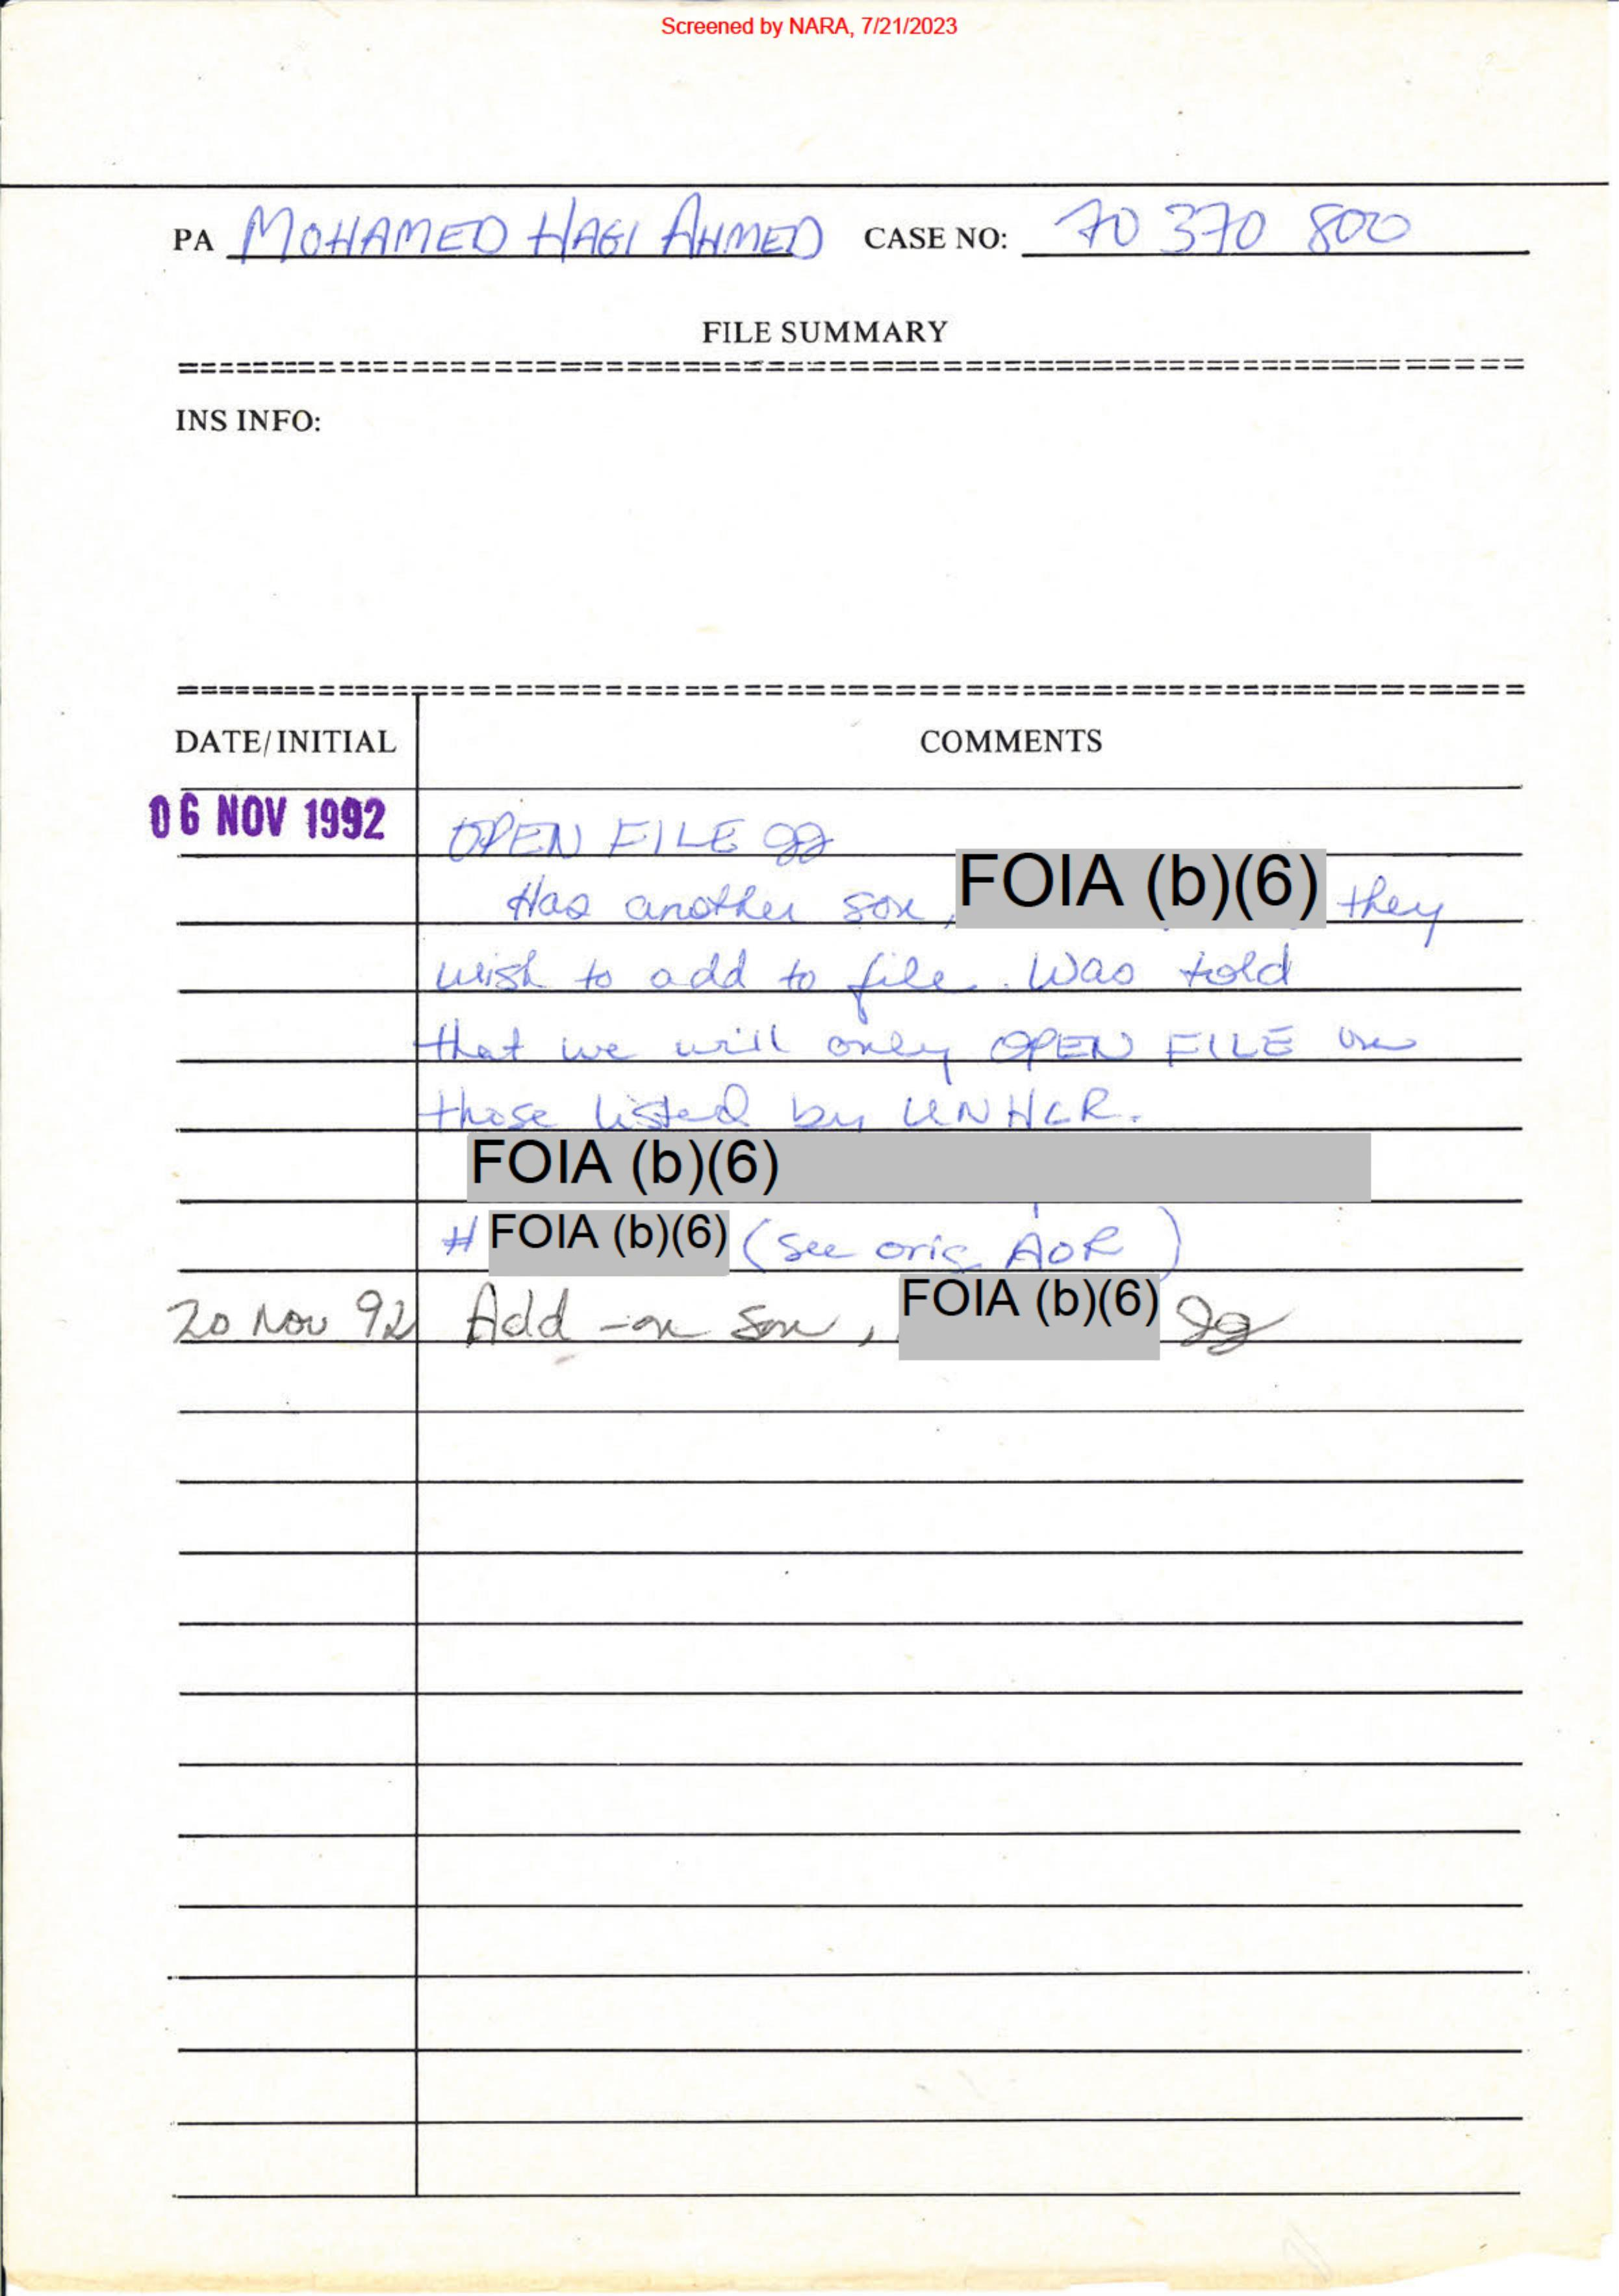 Screened by NARA, 7/21/2023
PA MOHAMED HAGI AHMED CASE NO: 70 370 800
FILE SUMMARY
INS INFO:
DATE/INITIAL COMMENTS
06 NOV 1992 OPEN FILE gg
Has another son, FOIA (b)(6) they
wish to add to file. Was told
that we will only OPEN FILE on
those listed by UNHCR.
FOIA (b)(6)
# FOIA (b)(6) (see orig AOR)
20 Nov 92 Add-on son, FOIA (b)(6) gg